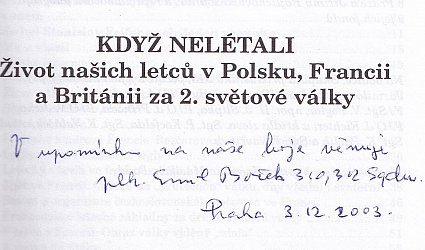 KDYŽ NELÉTALI
Život našich letců v Polsku, Francii
a Británii za 2. světové války
V upomínku na naše boje věnuje
plk. Emil Boček 310, 312 Sqdn.
Praha 3.12.2003.